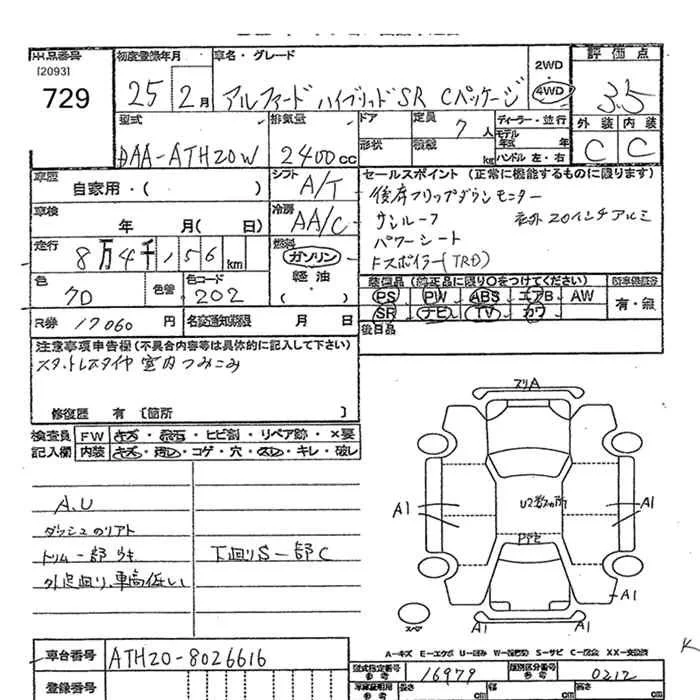 出品番号
[2093]
729
初度登録年月
25 2月
車名・グレード
アルファード ハイブリッド SR Cパッケージ
2WD
4WD
評価点
3.5
外装 内装
C C
型式
DAA-ATH20W
排気量
2400cc
ドア
定員 7人
形状
積載 kg
ディーラー・並行
モデル年式 年
ハンドル 左・右
車歴
自家用・( )
シフト
A/T
セールスポイント(正常に機能するものに限ります)
後席フリップダウンモニター
サンルーフ 社外20インチアルミ
パワーシート
Fスポイラー(TRD)
車検
年 月( 日)
冷房
AA/C
走行
8万4千156km
燃料
ガソリン
軽油
( )
色
クロ
色替
色コード
202
装備品(純正品に限り○をつけてください)
PS PW ABS エアB AW
SR ナビ TV カワ
有・無
R券 17060円
名変通知期限 月 日
後日品
注意事項申告欄(不具合内容等は具体的に記入して下さい)
スタットレスタイヤ 室内つみこみ
修復歴 有 [箇所 ]
検査員 FW キズ・飛石・ヒビ割・リペア跡・×要
記入欄 内装 キズ・汚レ・コゲ・穴・スレ・キレ・破レ
A.U
ダッシュのリアト
トリム一部ウキ 下廻りS一部C
外足廻り、車高低い
スリA
U2数ヶ所
A1 A1
A1
スペア
A1 A1
A-キズ E-エクボ U-凹み W-補修跡 S-サビ C-腐食 XX-交換済
車台番号
ATH20-8026616
登録番号
型式指定番号 参考
16979
類別区分番号 参考
0212
長さ cm
幅 cm
高さ cm